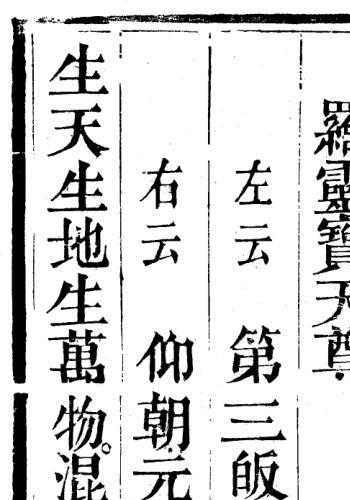 羅靈寶天尊
左云 第三皈
右云 仰朝元
生天生地生萬物。混